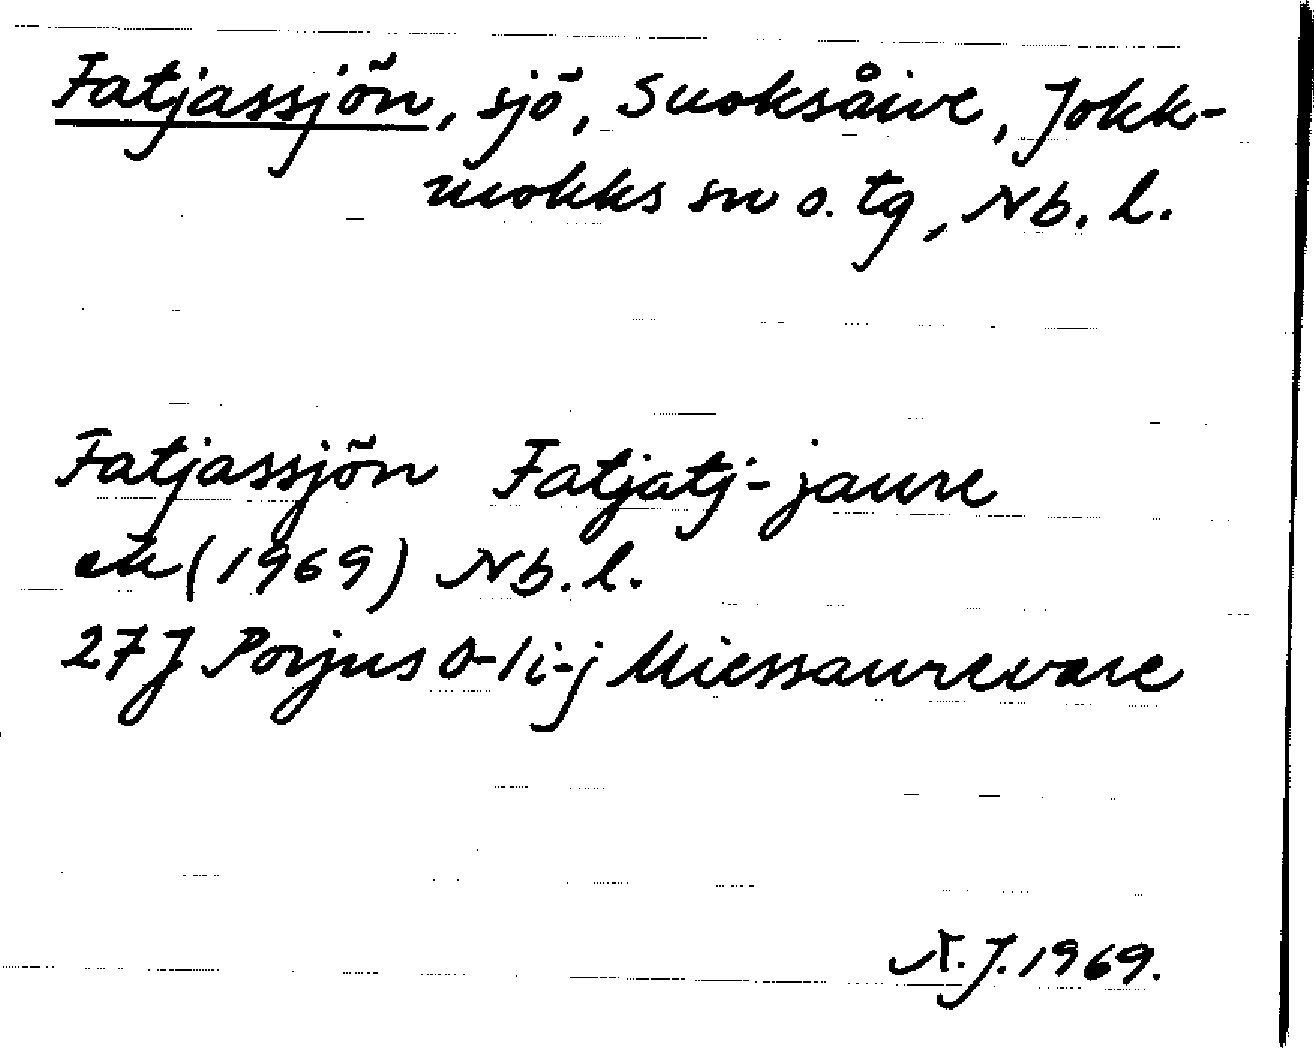 Fatjassjön, sjö, Suoksåive, Jokk-
mokks sn o. tg, Nb. l.
Fatjassjön Fatjatj-jaure
ek (1969) Nb. l.
27 J Porjus 0-1 i-j Miessaurevare
N. J. 1969.